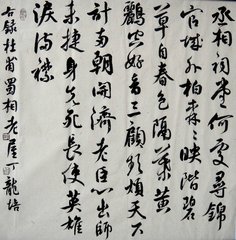 丞相祠堂何處尋錦
官城外柏森々映階碧
草自春色隔葉黃
鸝空好音三顧頻煩天下
計兩朝開濟老臣心出師
未捷身先死長使英雄
淚滿襟
錄杜甫蜀相老屋丁龍培